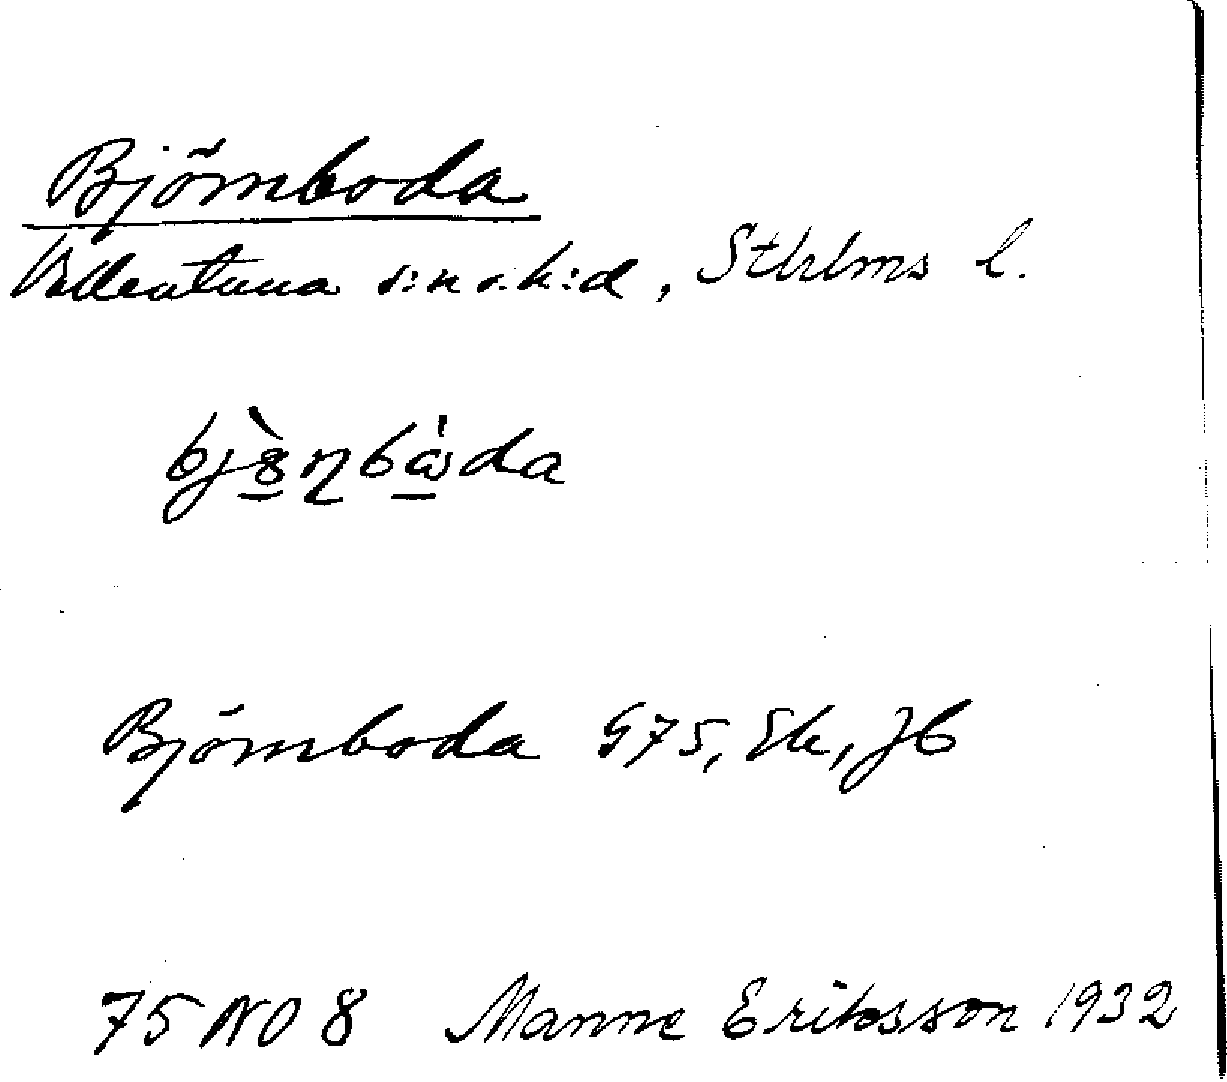 Björnboda
Vallentuna s:n o. h:d, Sthlms l.
Björnboda G75, Ek, Jb
75 NO 8 Manne Eriksson 1932